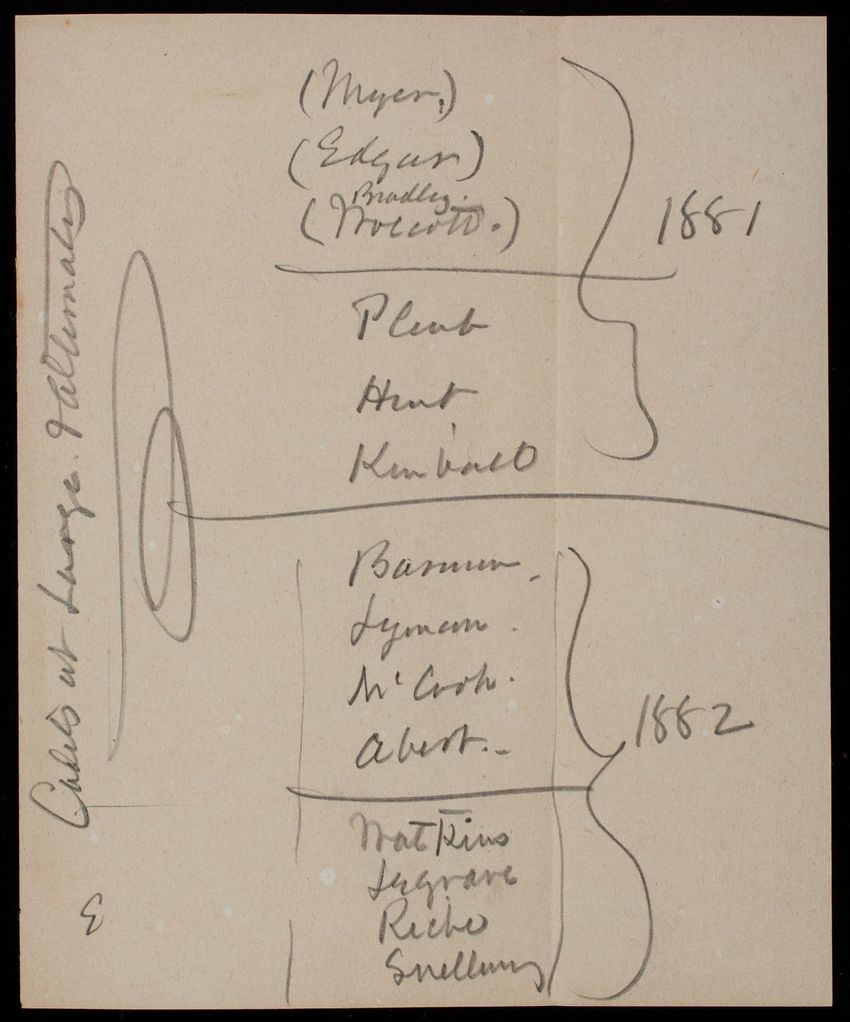 (Myer,)
(Edgar)
Bradley.
(Wolcott.)
1881
Plumb
Hunt
Kimball
Barnum.
Lyman.
McCook.
Abert.
1882
Watkins
Seagrave
Riche
Snelling
Cadets at Large. & Alternates
E